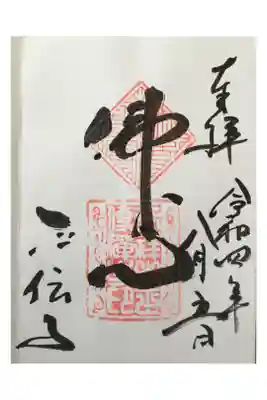 奉拝
令和四年
八月五日
佛心
正伝寺